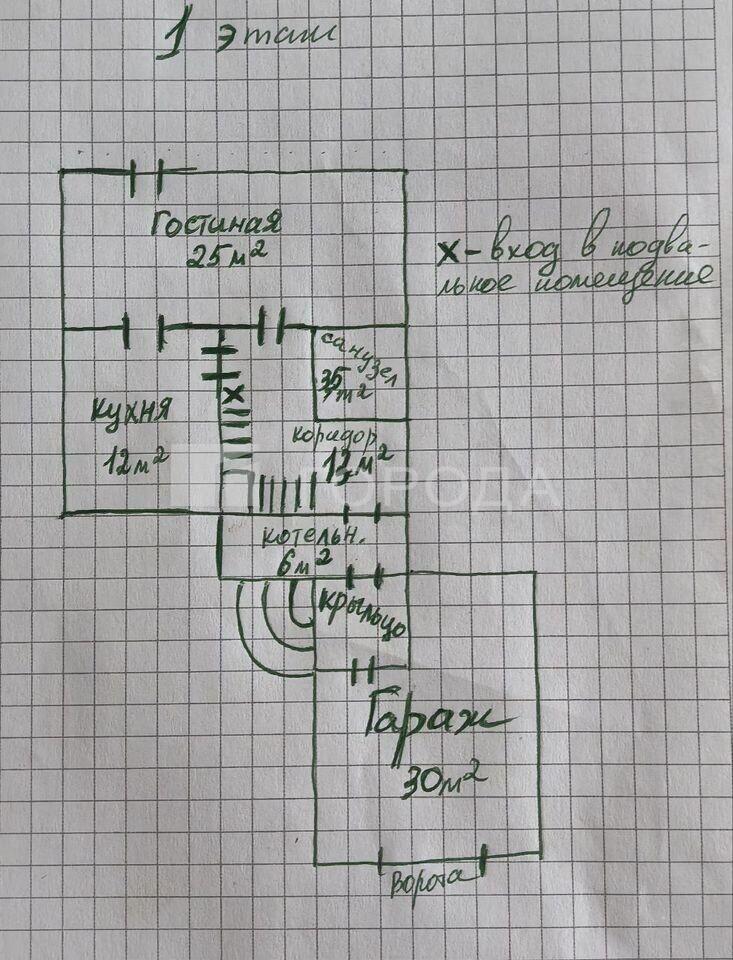 1 этаж
Гостиная
25м²
х-вход в подва-
льное помещение
санузел
3,5
м²
х
кухня
12м²
коридор
12м²
ГОРОДА
котельн.
6м²
крыльцо
Гараж
30м²
Ворота